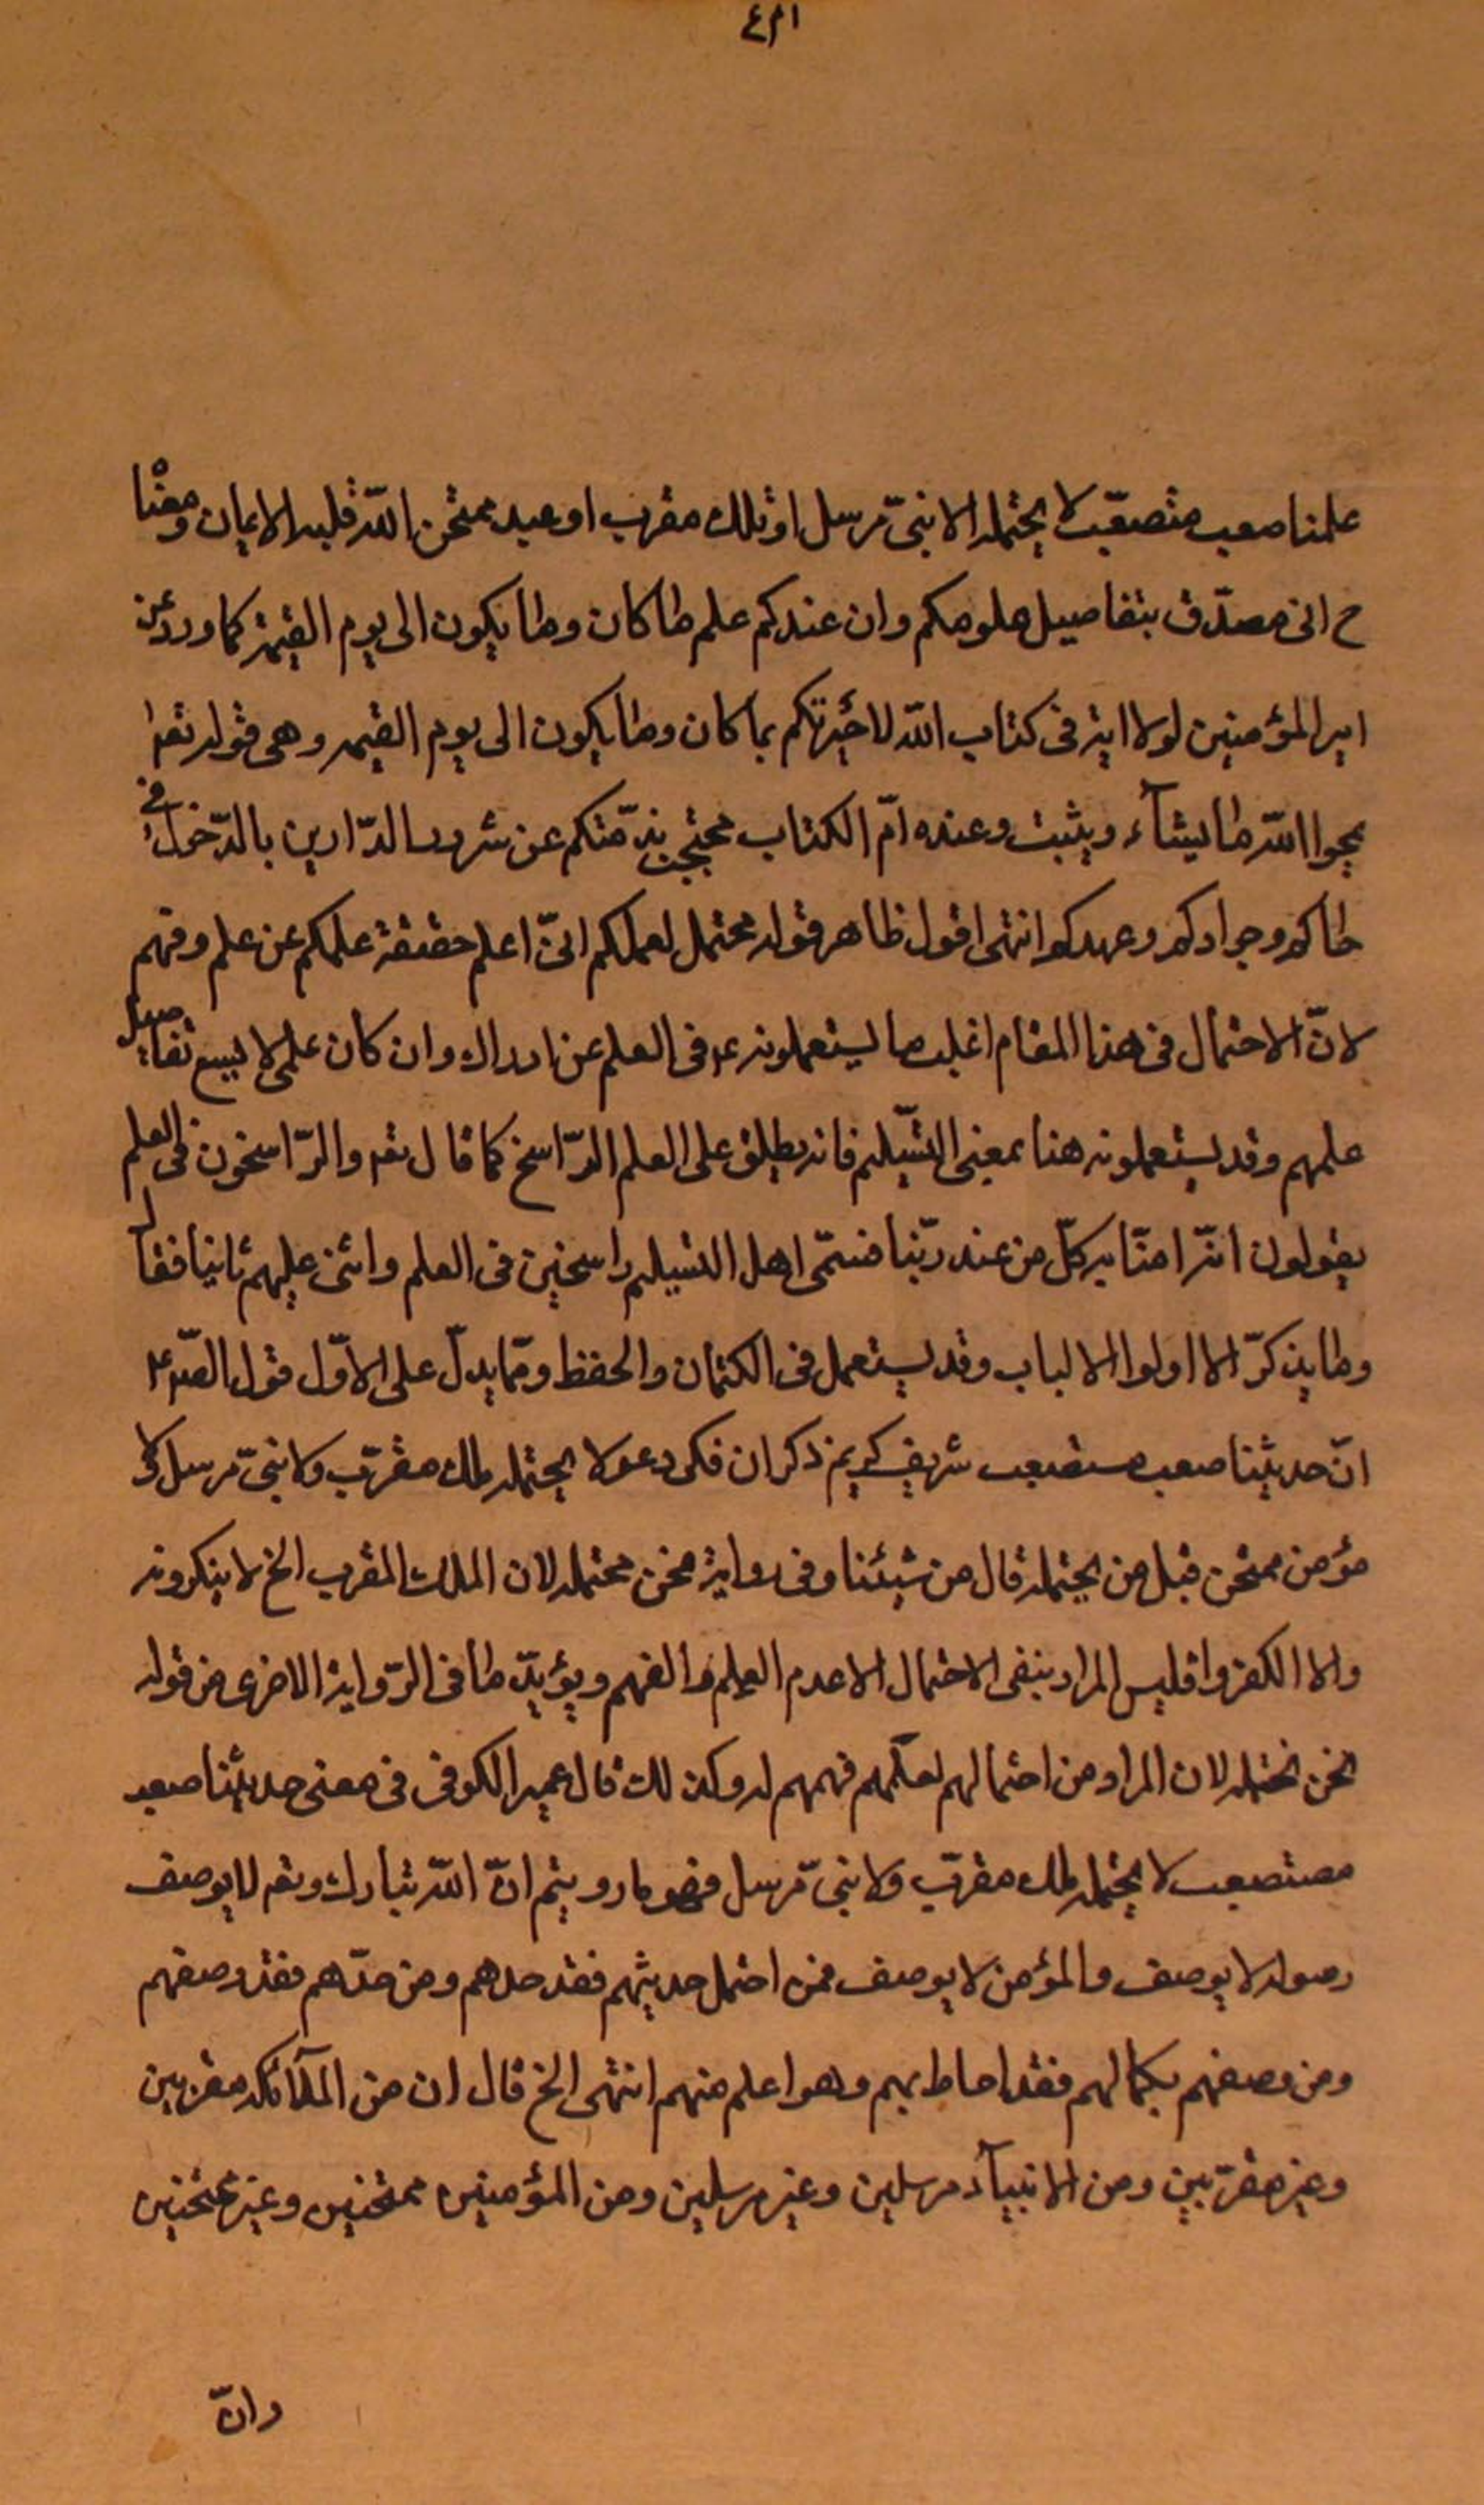 ٤٢١
علمنا صعب متصعّب لا يحتمله الا نبىّ مرسل او ملك مقرب او عبد ممتحن اللّه قلبه الايمان ومعنا
ح انى مصدّق بتفاصيل علومكم وان عندكم علم ما كان وما يكون الى يوم القيمة كما ورد عن
امير المؤمنين لولا اية فى كتاب اللّه لاخبرتكم بما كان وما يكون الى يوم القيمه وهى قوله تعا
يمحوا اللّه ما يشآء ويثبت وعنده امّ الكتاب محتجب بذمّتكم عن شرور الدّارين بالدّخول فى
حماكم وجواركم وعهدكم انتهى اقول ظاهر قوله محتمل لعملكم انىّ اعلم حقيقة علمكم عن علم وفهم
لانّ الاحتمال فى هذا المقام اغلب ما يستعملونه ع فى العلم عن ادراك وان كان علمى لا يسع تفاصيل
علمهم وقد يستعملونه هنا بمعنى التسّليم فانه يطلق على العلم الرّاسخ كما قال تعا والرّاسخون فى العلم
يقولون امنّا به كلّ من عند ربّنا فسمّى اهل التسليم راسخين فى العلم واثنى عليهم ثانيا فقال
وما يذكرّ الا اولوا الالباب وقد يستعمل فى الكتمان والحفظ وممّا يدلّ على الاوّل قول الصّ ع
انّ حديثنا صعب مستصعب شريف كريم ذكران ذكى وعر لا يحتمله ملك مقرّب ولا نبىّ مرسل ولا
مؤمن ممتحن قيل من يحتمله قال من شيئنا وفى رواية نحن نحتمله لان الملك المقرب الخ لا ينكرونه
والا الكفروا فليس المراد بنفى الاحتمال الا عدم العلم والفهم ويؤيدّ ما فى الرّواية الاخرى من قوله
نحن نحتمله لان المراد من احتمالهم لعلمهم فهمهم له وكذلك قال عمير الكوفى فى معنى حديثنا صعب
مستصعب لا يحتمله ملك مقرّب ولا نبىّ مرسل فهو ما رويتم انّ اللّه تبارك وتعا لا يوصف
رسوله لا يوصف والمؤمن لا يوصف فمن احتمل حديثهم فقد حدهم ومن حدّهم فقد وصفهم
ومن وصفهم بكمالهم فقد احاط بهم وهو اعلم منهم انتهى الخ قال ان من الملآئكه مقربين
وغير مقرّبين ومن الانبيآء مرسلين وغير مرسلين ومن المؤمنين ممتحنين وغير ممتحنين
وانّ